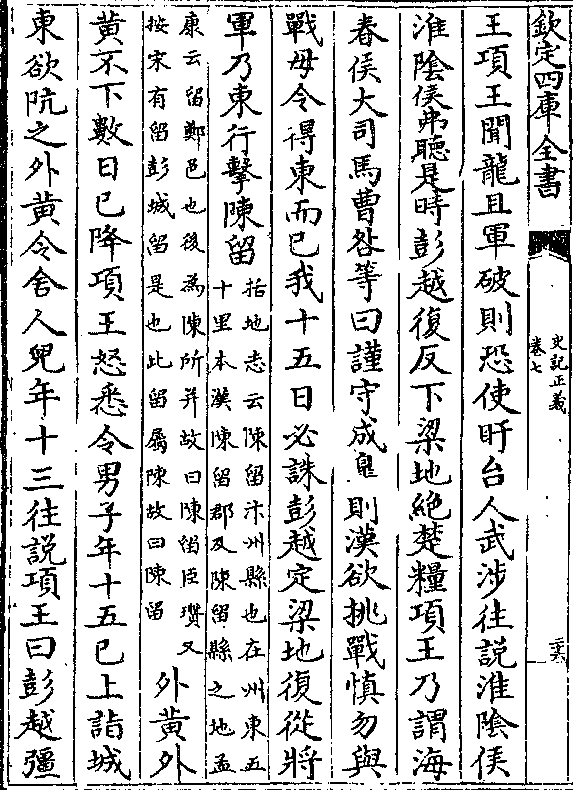 欽定四庫全書
史記正義
卷七
王項王聞龍且軍破則恐使盱台人武涉往說淮陰侯
淮陰侯弗聽是時彭越復反下梁地絕楚糧項王乃謂海
春侯大司馬曹咎等曰謹守成臯則漢欲挑戰慎勿與
戰毋令得東而已我十五日必誅彭越定梁地復從將
軍乃東行擊陳留
括地志云陳留汴州縣也在州東五
十里本漢陳留郡及陳留縣之地孟
康云留鄭邑也後為陳所并故曰陳留臣瓚又
按宋有留彭城留是也此留屬陳故曰陳留
外黃外
黃不下數日已降項王怒悉令男子年十五已上詣城
東欲阬之外黃令舍人兒年十三往說項王曰彭越彊